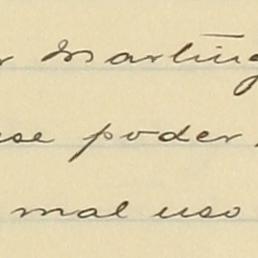 r Marting
ese poder
mal uso